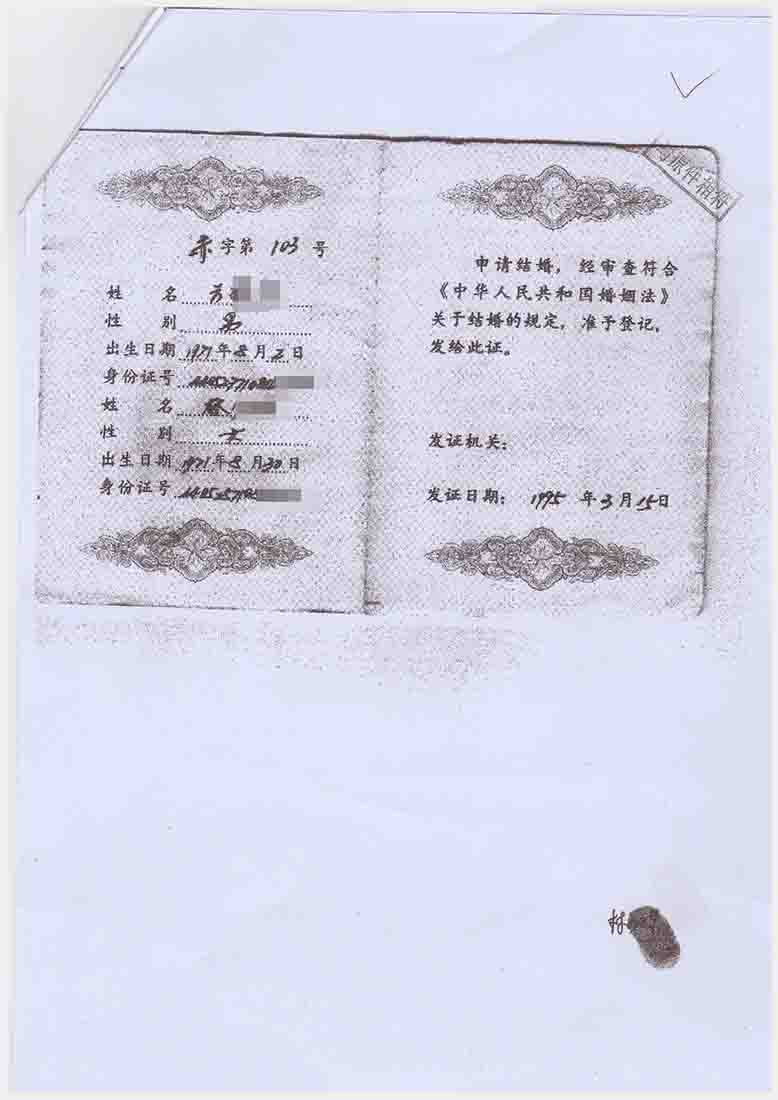 赤字第 103 号
姓 名
性 别 男
出生日期 1971 年 8 月 2 日
身份证号
姓 名
性 别 女
出生日期 1971 年 8 月 30 日
身份证号
与原件相符
申请结婚,经审查符合
《中华人民共和国婚姻法》
关于结婚的规定,准予登记,
发给此证。
发证机关:
发证日期: 1995 年 3 月 15 日